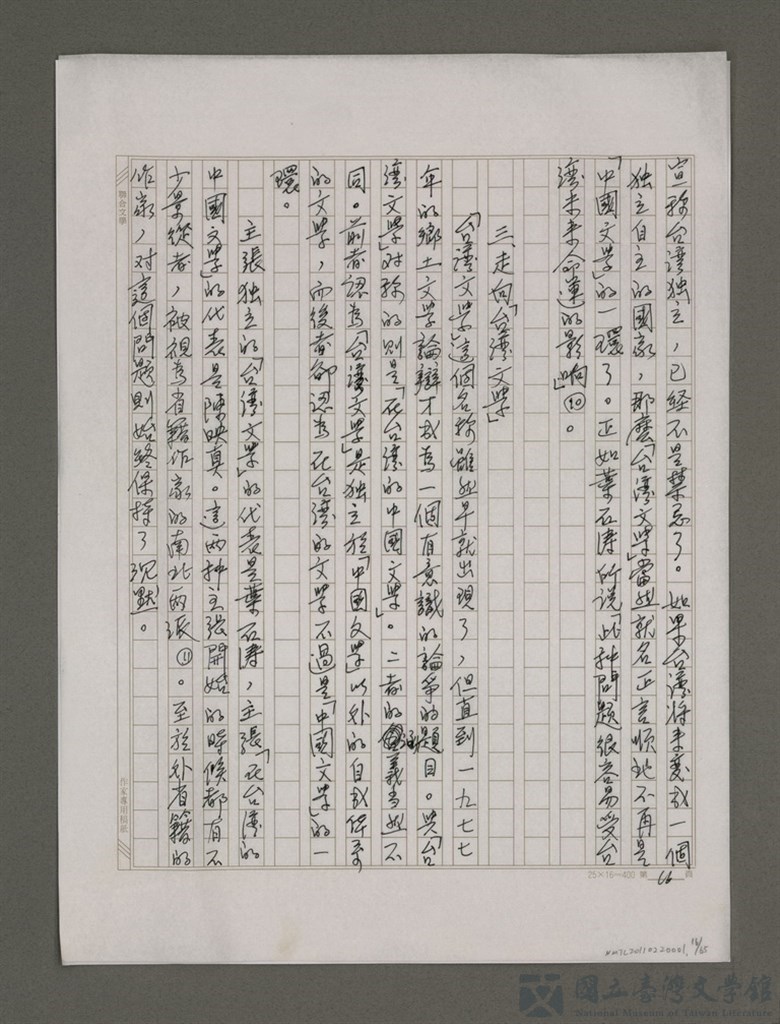 宣称台湾独立，已経不是禁忌了。如果台湾将来变成一個
独立自主的國家，那麼「台湾文學」當然就名正言順地不再是
「中國文學」的一環了。正如葉石涛所说「此种問題很容易受台
湾未来命運的影响」⑩。
三走向「台湾文學」
「台湾文學」這個名称雖然早就出現了，但直到一九七七
年的鄉土文学論辯才成為一個有意識的論爭的題目。與「台
湾文學」对称的則是「在台湾的中國文學」。二者的涵義当然不
同。前者認為「台湾文學」是独立於「中國文學」以外的自成体系
的文學，而後者卻認為在台湾的文学不過是「中國文學」的一
環。
主張独立的「台湾文學」的代表是葉石涛，主張「在台湾的
中國文學」的代表是陳映真。這兩种主張開始的時候都有不
少景從者，被視為省籍作家的南北兩派⑪。至於外省籍的
作家，对這個問題則始終保持了沉默。
聯合文學
作家專用稿紙
25×16=400 第16頁
NMTL20110220001, 16/65
國立臺灣文學館
National Museum of Taiwan Literature